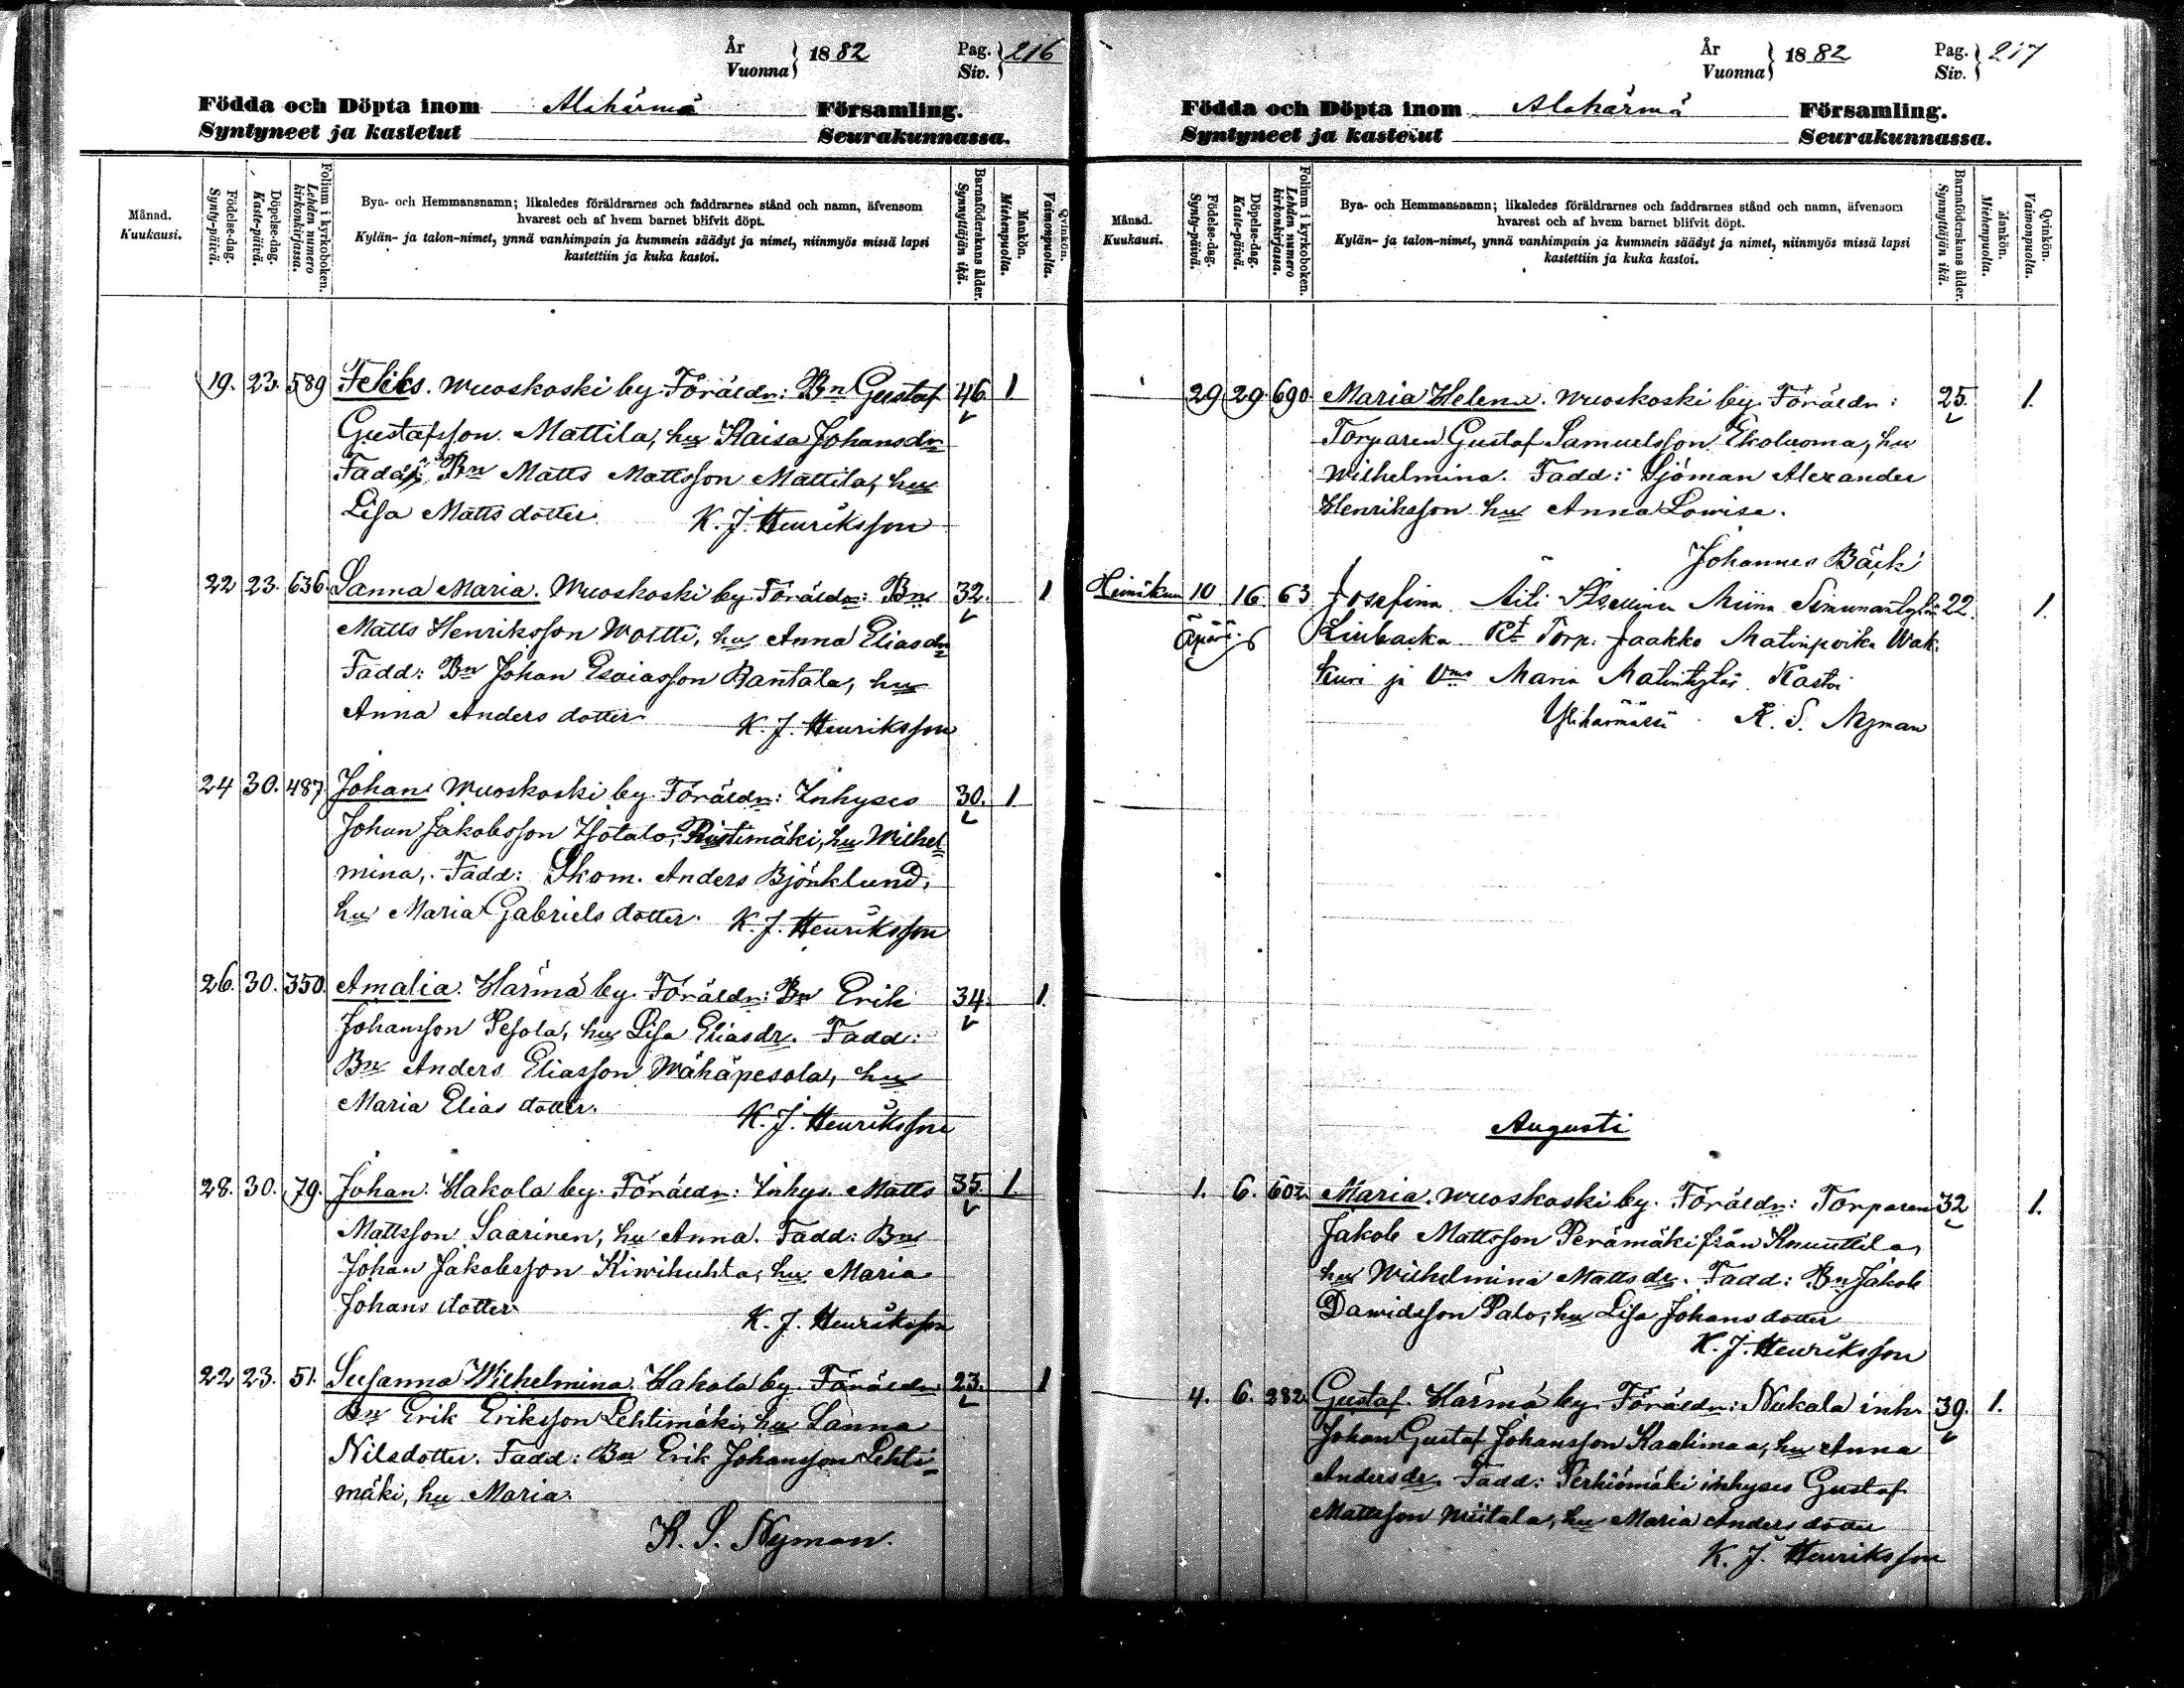 År
Vuonna } 1882
Pag.
Siv. } 216
Födda och Döpta inom Alahärmä Församling.
Syntyneet ja kastetut Seurakunnassa.
Månad.
Kuukausi.
Födelse-dag.
Synty-päivä.
Döpelse-dag.
Kaste-päivä.
Folium i kyrkoboken.
Lehden numero
kirkonkirjassa.
Bya- och Hemmansnamn; likaledes föräldrarnes och faddrarnes stånd och namn, äfvensom
hvarest och af hvem barnet blifvit döpt.
Kylän- ja talon-nimet, ynnä vanhimpain ja kummein säädyt ja nimet, niinmyös missä lapsi
kastettiin ja kuka kastoi.
Barnaföderskans ålder.
Synnyttäjän ikä.
Mankön.
Miehenpuolta.
Qvinkön.
Vaimonpuolta.
19. 23. 589 Feliks. Wuoskoski by. Föräldr: Bn Gustaf 46. 1
Gustafsson Mattila, hu Kaisa Johansdr
Fadd: Bn Matts Mattsson Mattila, hu
Lisa Mattsdotter. K. J. Henriksson
22 23. 636. Sanna Maria. Wuoskoski by. Föräldr: Bn 32. 1
Matts Henriksson Woltti, hu Anna Eliasdr
Fadd: Bn Johan Esaiasson Rantala, hu
Anna Andersdotter K. J. Henriksson
24 30. 487. Johan Wuoskoski by. Föräldr: Inhyses 30. 1
Johan Jakobsson Isotalo, Ristimäki, hu Wilhel
mina, Fadd: Skom. Anders Björklund,
hu Maria Gabrielsdotter. K. J. Henriksson
26. 30. 350. Amalia. Härmä by. Föräldr: Bn Erik 34. 1.
Johansson Pesola, hu Lisa Eliasdr. Fadd:
Bn Anders Eliasson Wähäpesola, hu
Maria Eliasdotter. K. J. Henriksson
28. 30. 79. Johan. Hakola by. Föräldr: Inhys. Matts 35. 1.
Mattsson Saarinen, hu Anna. Fadd: Bn
Johan Jakobsson Kiwihuhta, hu Maria
Johansdotter K. J. Henriksson
22 23. 51. Susanna Wilhelmina. Hakola by. Föräldr 23. 1
Bn Erik Eriksson Lehtimäki, hu Sanna
Nilsdotter. Fadd: Bn Erik Johansson Lehti
mäki, hu Maria.
K. S. Nyman.
År
Vuonna } 1882
Pag.
Siv. } 217
Födda och Döpta inom Alahärmä Församling.
Syntyneet ja kastetut Seurakunnassa.
Månad.
Kuukausi.
Födelse-dag.
Synty-päivä.
Döpelse-dag.
Kaste-päivä.
Folium i kyrkoboken.
Lehden numero
kirkonkirjassa.
Bya- och Hemmansnamn; likaledes föräldrarnes och faddrarnes stånd och namn, äfvensom
hvarest och af hvem barnet blifvit döpt.
Kylän- ja talon-nimet, ynnä vanhimpain ja kummein säädyt ja nimet, niinmyös missä lapsi
kastettiin ja kuka kastoi.
Barnaföderskans ålder.
Synnyttäjän ikä.
Mankön.
Miehenpuolta.
Qvinkön.
Vaimonpuolta.
29 29. 690. Maria Helena. Wuoskoski by. Föräldr: 25. 1.
Torparen Gustaf Samuelsson Ekoluoma, hu
Wilhelmina. Fadd: Sjöman Alexander
Henriksson hu Anna Lowisa.
Johannes Bäck
Heinäkuu 10 16. 63 Josefina Äiti Itsellinen Miina Simunantytär 22. 1.
Äpärä Liinbacka Kt Torp. Jaakko Matinpoika Wak
kuri ja Vmo Maria Matintytär. Kastoi
Ylihärmässä K. S. Nyman
Augusti
1. 6. 602. Maria. Wuoskoski by. Föräldr: Torparen 32 1.
Jakob Mattsson Perämäki från Knuuttila,
hu Wilhelmina Mattsdr. Fadd: Bn Jakob
Dawidsson Palo, hu Lisa Johansdotter
K. J. Henriksson
4. 6. 282. Gustaf. Härmä by. Föräldr: Nukala inh. 39. 1.
Johan Gustaf Johansson Kaalimaa, hu Anna
Andersdr. Fadd: Perkiömäki inhyses Gustaf
Mattsson Wiitala, hu Maria Andersdotter
K. J. Henriksson